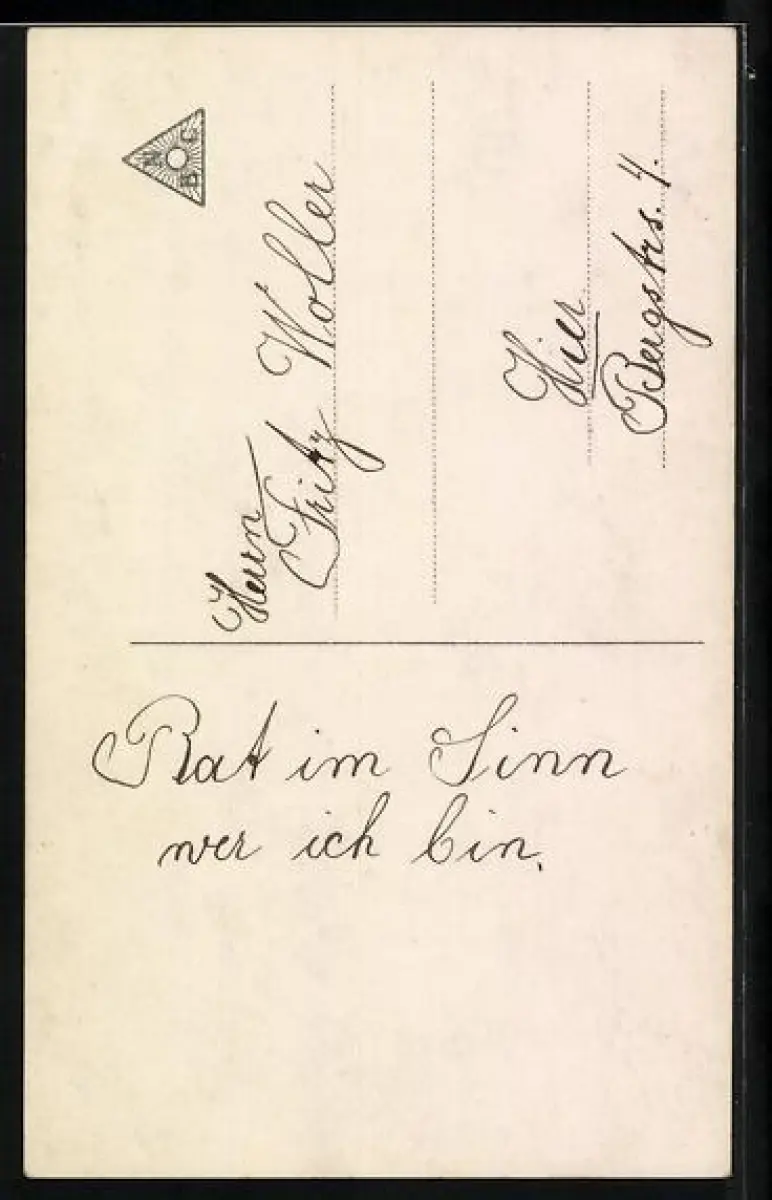 BNC
Herrn
Fritz Woller
Hier
Bergstrs. 4.
Rat im Sinn
wer ich bin.